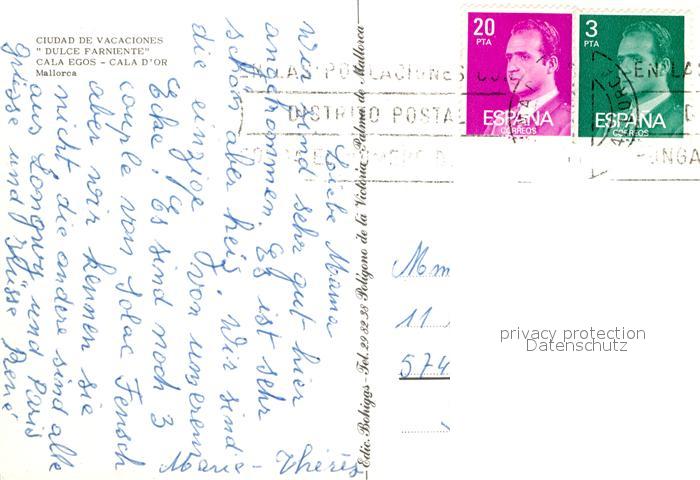 CIUDAD DE VACACIONES
" DULCE FARNIENTE"
CALA EGOS - CALA D'OR
Mallorca
Liebe Mama
Wir sind sehr gut hier
angekommen. Es ist sehr
schön aber heiß. Wir sind
die einzige von unserem
Ecke! Es sind noch 3
couple von Solac Fensch
aber wir kennen sie
nicht, die andere sind alle
aus Longwy und Paris
grüsse und Küsse René
Marie-Thérèse
Edic. Bohigas - Tel. 29 32 38 Polígono de la Victoria - Palma de Mallorca
20
PTA
ESPAÑA
CORREOS
3
PTA
ESPAÑA
CORREOS
EN LAS POBLACIONES CON
DISTRITO POSTAL
EN LA
PONGA
11
574
privacy protection
Datenschutz